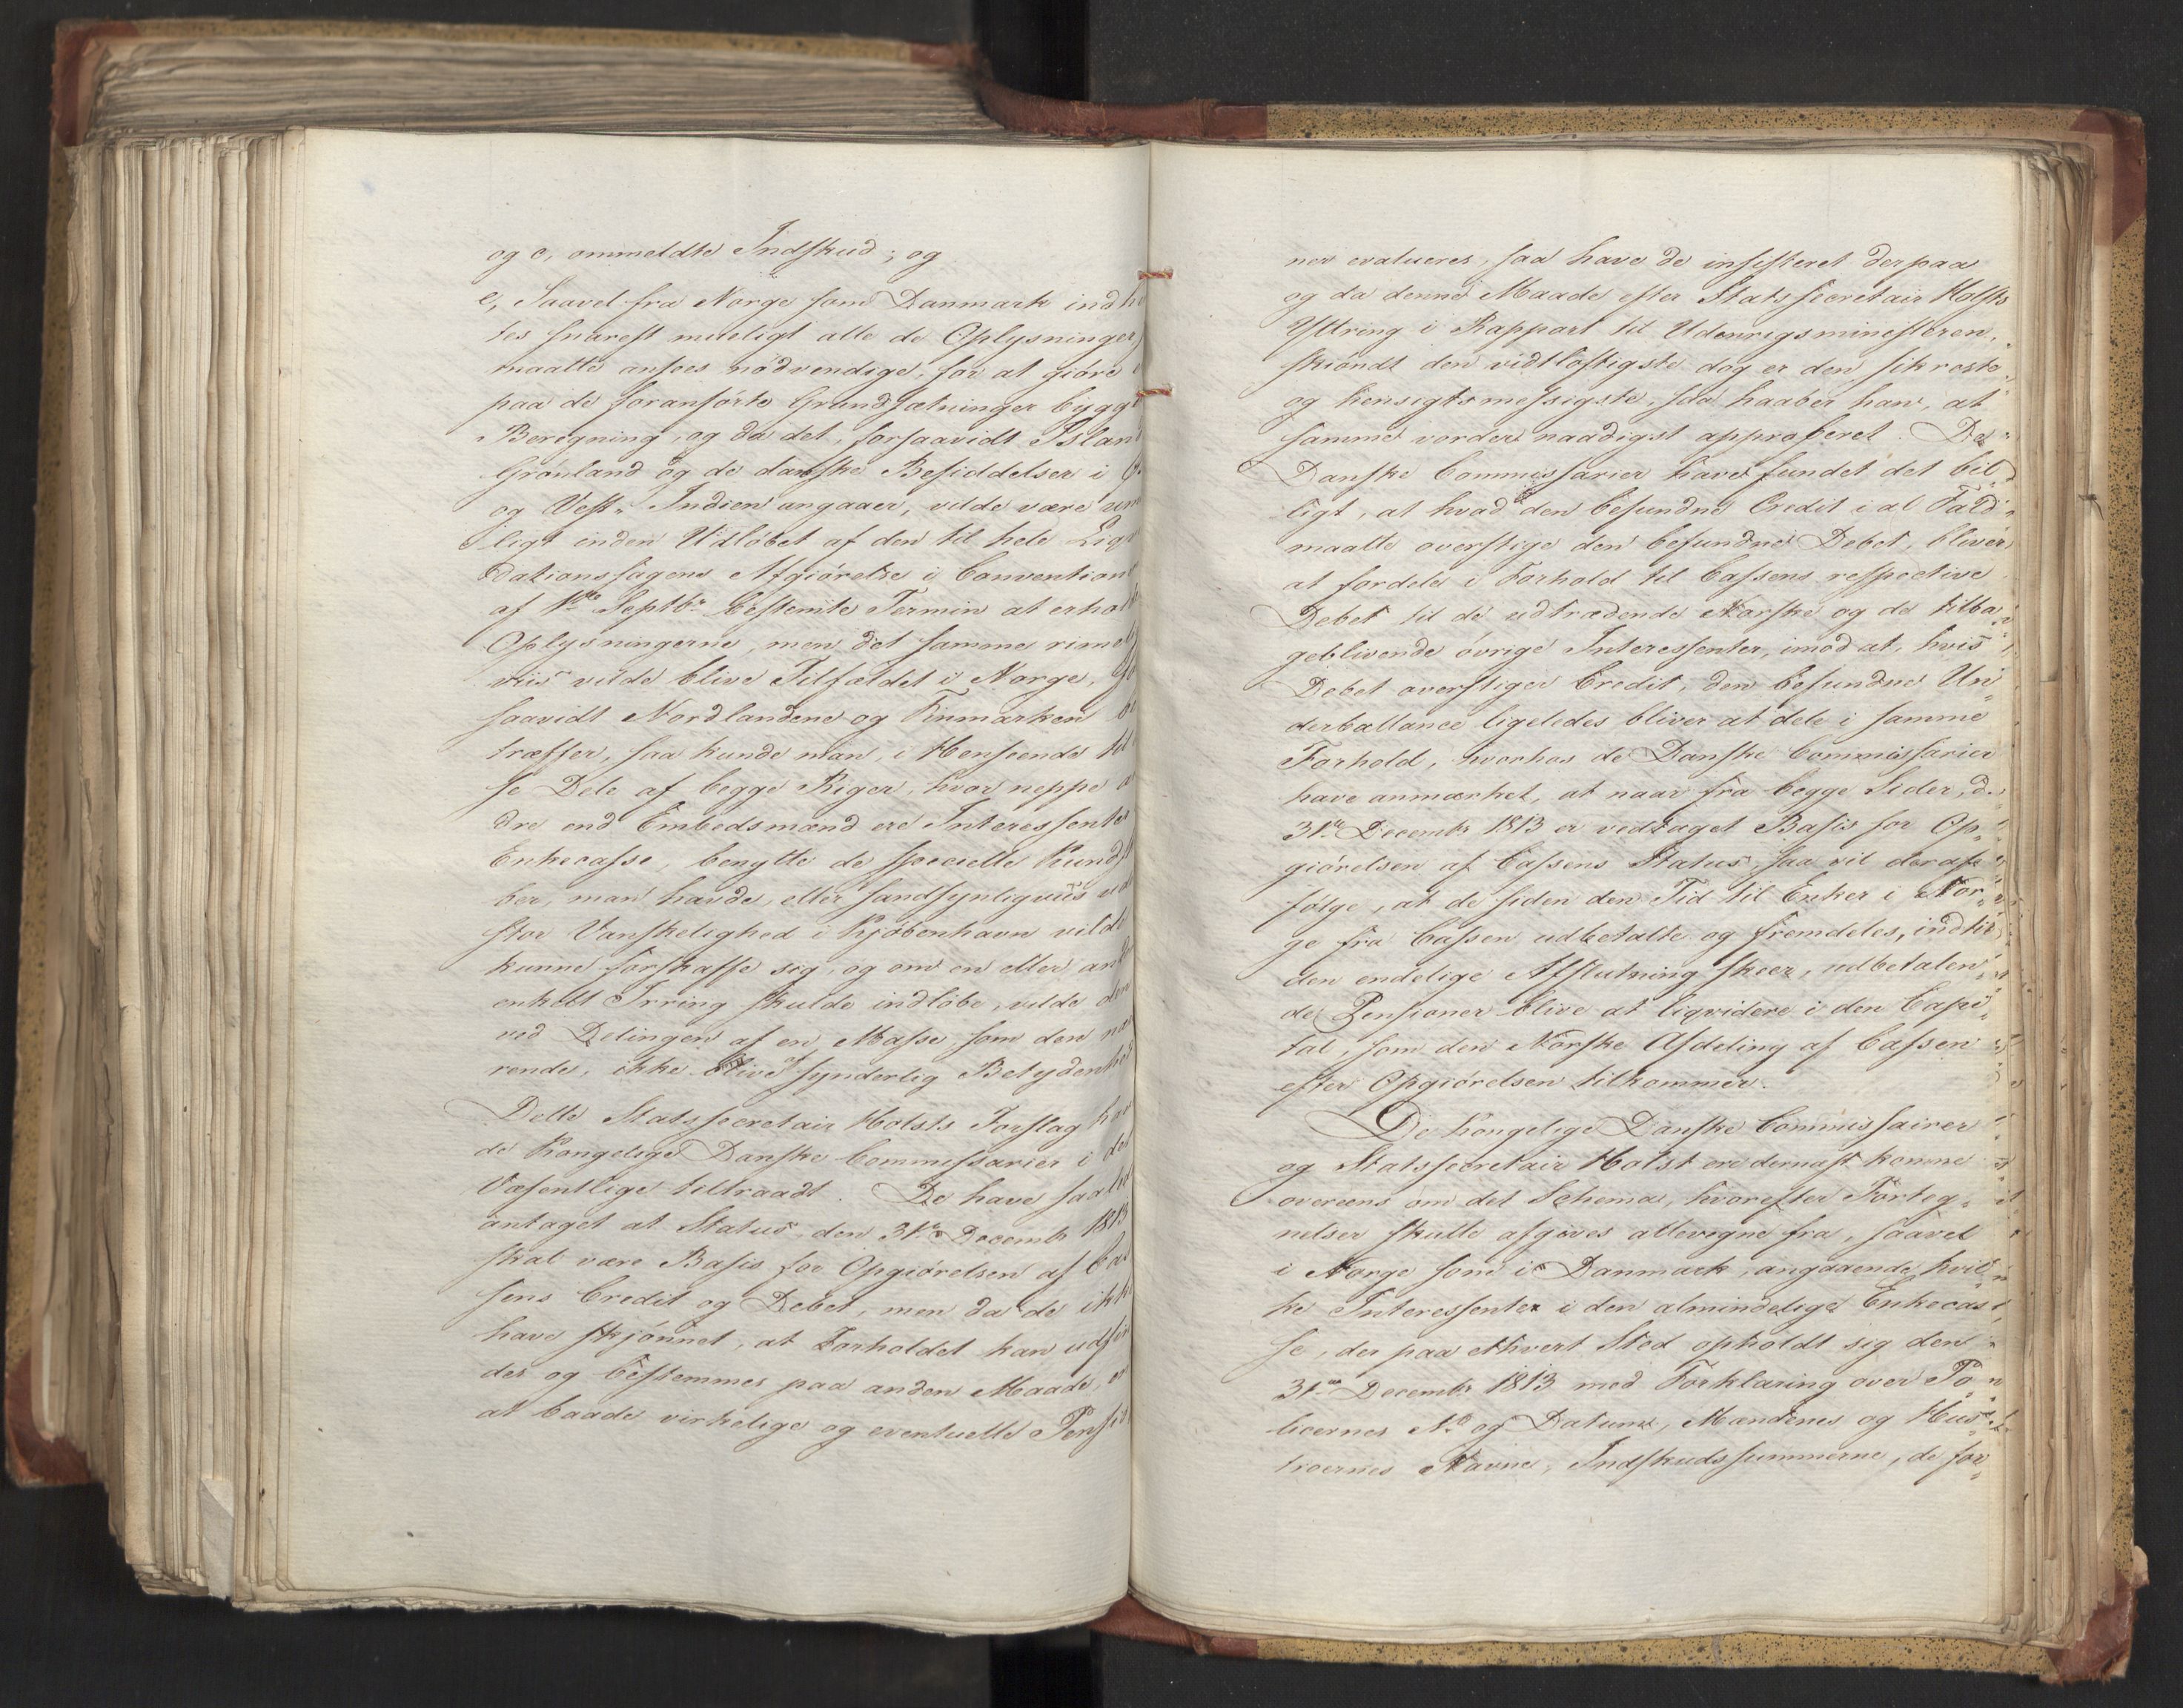 og c, ommeldte Indskud; og
e, Saavel fra Norge som Danmark indhe
tes snarest mueligt alle de Oplysninger
maatte ansees nødvendige, for at giøre
paa de foranførte Grundsætninger bygget
Beregning, og da det, forsaavidt Island
Grønland og de danske Besiddelser i
og Vest- Indien angaaer, vilde være
ligt inden Udløbet af den til hele Liqvi
dationssagens Afgiørelse i Convention
af 1ste Septbr bestemte Termin at erhol
Oplysningerne, men det samme rime
viis vilde blive Tilfældet i Norge, for
saavidt Nordlandene og Finmarken be
træffer, saa kunde man, i Henseende til
se Dele af begge Riger, hvor neppe an
dre end Embedsmænd ere Interessenter
Enkecasse, benytte de specielle Kundska
ber, man havde, eller sandsynligviis uden
stor Vanskelighed i Kjøbenhavn vilde
kunne forskaffe sig, og om en eller anden
enkelt Irring skulde indløbe, vilde den
ved Delingen af en Masse, som den nær
rende, ikke blive af synderlig Betydenhed
Dette Statssecretair Holsts Forslag have
de Kongelige Danske Commissarier i det
Væsentlige tiltraadt. De have saaledes
antaget at Status, den 31te Decembr 1813
skal være Basis for Opgiørelsen af Cas
sens Credit og Debet, men da de ikke
have skjønnet, at Forholdet kan udfin
des og bestemmes paa anden Maade, 
at baade virkelige og eventuelle Pensio
ner evalueres, saa have de insisteret derpaa
og da denne Maade efter Statssecretair Holsts
Yttring i Rapport til Udenrigsministeren,
skiøndt den vidtløftigste dog er den sikreste
og hensigtsmessigste, saa haaber han, at
samme vorder naadigst approberet. De
Danske Commissarier have fundet det bil
ligt, at hvad den befundne Credit i al Fald
maatte overstige den befundne Debet, bliver
at fordele i Forhold til Cassens respective
Debet til de udtrædende Norske og de tilba
geblivende øvrige Interessenter, imod at, hvis
Debet overstiger Credit, den befundne Un
derballance ligeledes bliver at dele i samme
Forhold, hvorhos de Danske Commissarier
have anmærket, at naar fra begge Sider, d.
31te Decembr 1813 er vedtaget Basis for Op
giørelsen af Cassens Status, saa vil deraf
følge, at de siden den Tid til Enker i Nor
ge fra Cassen udbetalte og fremdeles, indtil
den endelige Afslutning skeer, udbetalen
de Pensioner blive at liqvidere i den Capi
tal, som den Norske Afdeling af Cassen
efter Opgiørelsen tilkommer.
De Kongelige Danske Commissairer
og Statssecretair Holst ere dernæst komne
overeens om det Schema, hvorefter Forteg
nelser skulle afgives allevegne fra, saavel
i Norge som i Danmark, angaaende, hvil
ke Interessenter i den almindelige Enkecas
se, der paa ethvert Sted opholdt sig den
31te Decembr 1813 med Forklaring over Po
licernes No og Datum, Mændenes og Hus
troernes Navne, Indskudssummerne, de for